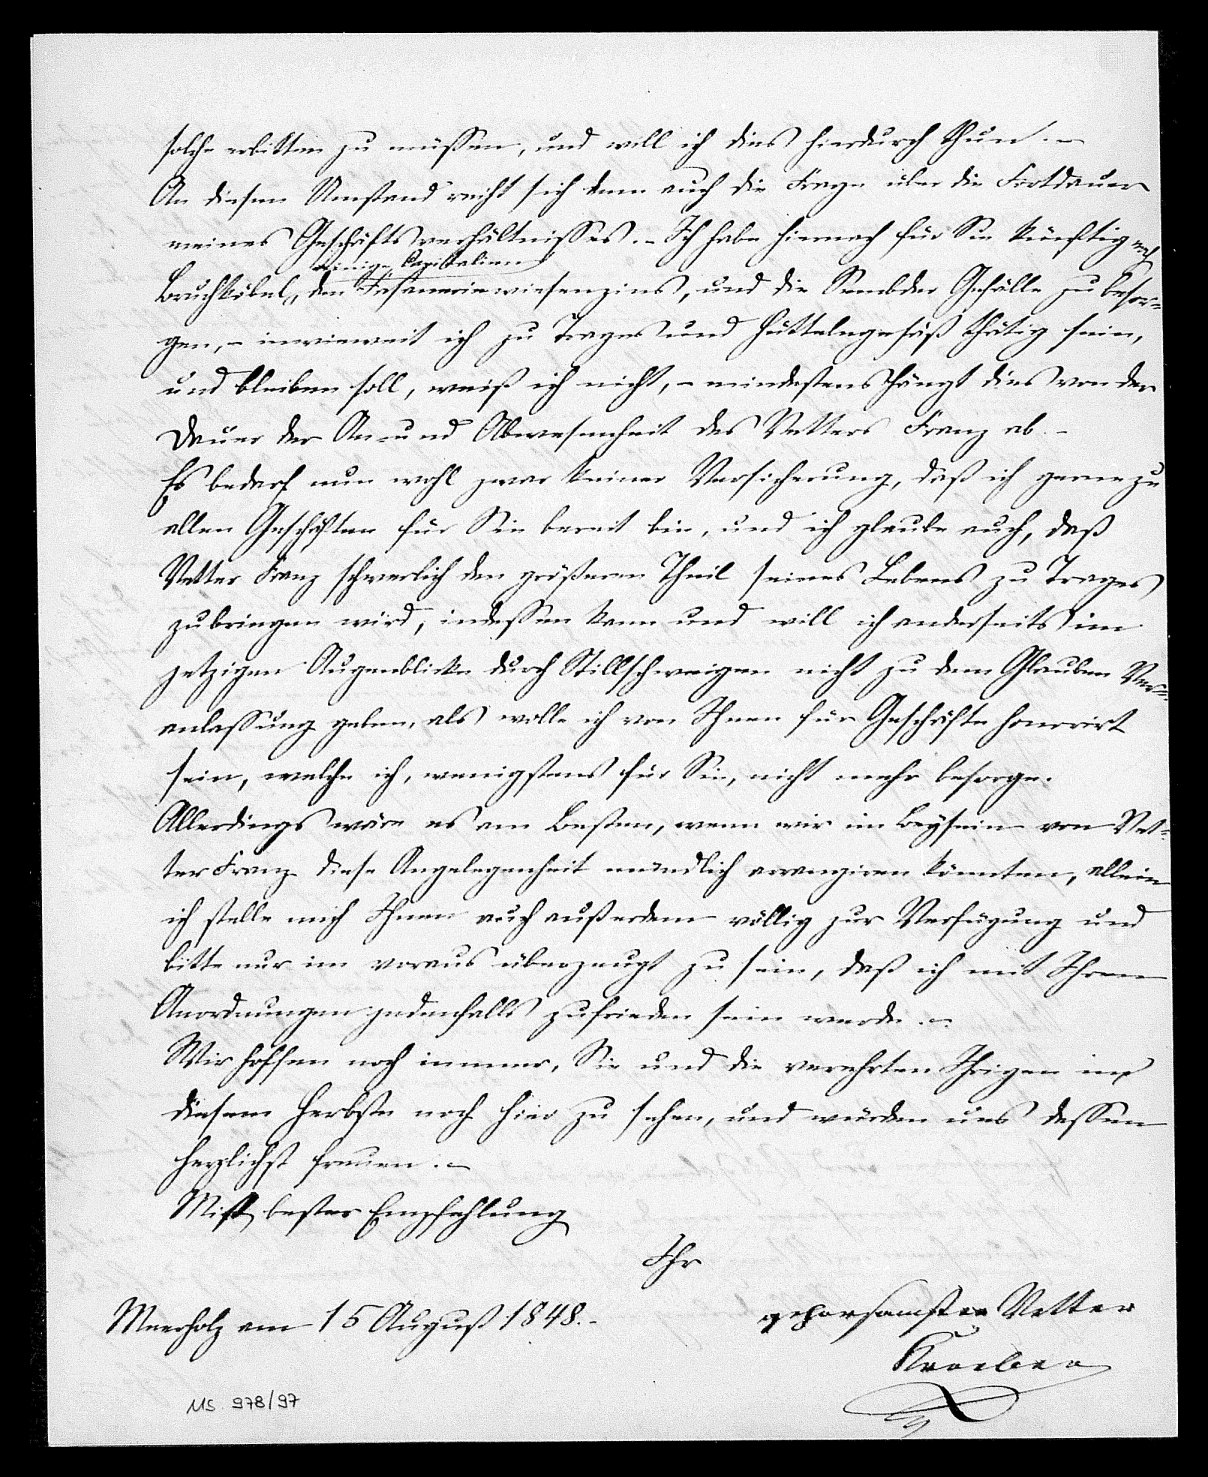 solche erbitten zu müssen, und will ich dies hierdurch thun. –
An diesen Umstand reiht sich dann auch die Frage über die Fortdauer
meines Geschäftsverhältnisses. – Ich habe hiernach für Sie künftig noch
einige Capitalien
Bruchköbel, den Fasanerie wiesenzins, und die Gefälle zu besor=
gen, – inwieweit ich zu Trages und Hüttelngesäß thätig sein,
und bleiben soll, weiß ich nicht, – mindestens hängt dies von der
Dauer der An- und Abwesenheit des Vetters Franz ab. –
Es bedarf nun wohl zwar keiner Versicherung, daß ich gerne zu
allen Geschäften für Sie bereit bin, und ich glaube auch, daß
Vetter Franz schwerlich den größeren Theil seines Lebens zu Trages
zubringen wird, indessen kann und will ich anderseits im
jetzigen Augenblicke durch Stillschweigen nicht zu dem Glauben Ver=
anlassung geben, als wolle ich von Ihnen für Geschäfte honorirt
sein, welche ich, wenigstens für Sie, nicht mehr besorge.
Allerdings wäre es am Besten, wenn wir im Beysein von Vet=
ter Franz diese Angelegenheit mündlich arrangiren könnten, allein
ich stelle mich Ihnen auch außerdem völlig zur Verfügung und
bitte nur im voraus überzeugt zu sein, daß ich mit Ihren
Anordnungen jedenfalls zufrieden sein werde. –
Wir hoffen noch immer, Sie und die verehrten Ihrigen in
diesem Herbste noch hier zu sehen, und würden uns dessen
herzlichst freuen. –
Mit bester Empfehlung
Ihr
Meerholz am 15 August 1848. –
gehorsamster Vetter
MS 978/97